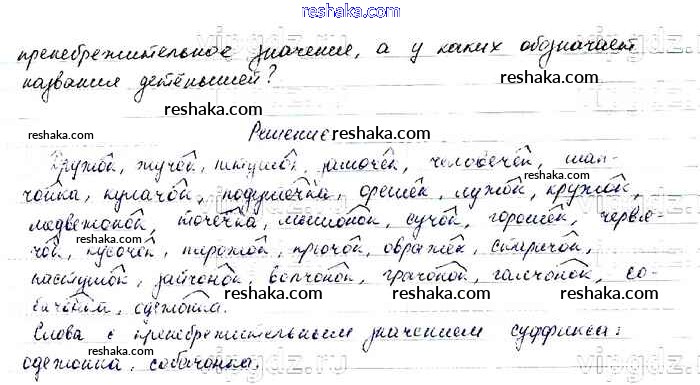 reshaka.com
пренебрежительное значение, а у каких обозначает
названия детёнышей?
reshaka.com
reshaka.com
reshaka.com
Решение
reshaka.com
Дружок, жучок, петушок, замочек, человечек, шап-
чонка, кулачок, подушечка, орешек, лужок, кружок,
reshaka.com
reshaka.com
медвежонок, точечка, мышонок, сучок, горошек, червя-
чок, кусочек, пирожок, крючок, овражек, старичок,
reshaka.com
reshaka.com
пастушок, зайчонок, волчонок, грачонок, галчонок, со-
бачонка, одежонка.
reshaka.com
reshaka.com
reshaka.com
Слова с пренебрежительным значением суффикса:
одежонка, собачонка.
reshaka.com
reshaka.com